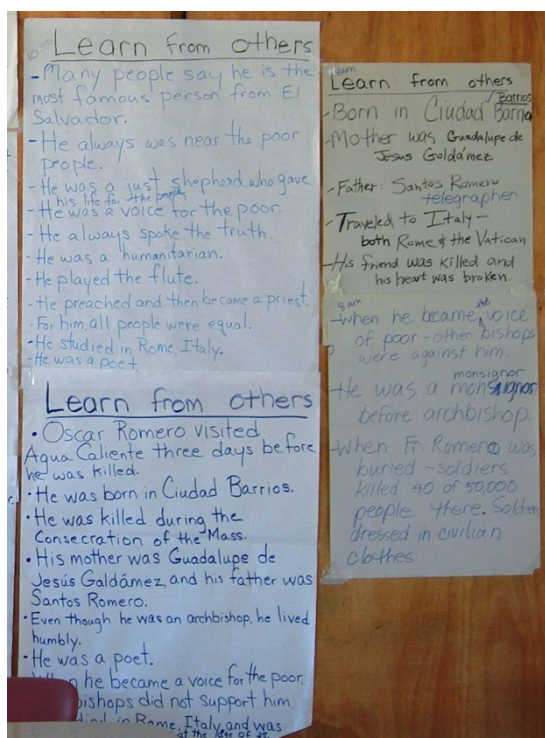 Learn from others
- Many people say he is the
most famous person from El
Salvador.
- He always was near the poor
people.
- He was a just shepherd who gave
his life for the people
- He was a voice for the poor.
- He always spoke the truth
- He was a humanitarian.
- He played the flute.
- He preached and then became a priest.
- For him, all people were equal.
- He studied in Rome, Italy.
- He was a poet
Learn from others
• Oscar Romero visited
Agua Caliente three days before
he was killed.
• He was born in Ciudad Barrios.
• He was killed during the
Consecration of the Mass.
• His mother was Guadalupe de
Jesús Galdámez, and his father was
Santos Romero.
• Even though he was an archbishop, he lived
humbly.
• He was a poet.
When he became a voice for the poor,
bishops did not support him.
in Rome, Italy, and was
at the age of 25.
8am
Learn from others
Barrios
- Born in Ciudad Barrio
- Mother was Guadalupe de
Jesus Goldámez
- Father: Santos Romero
telegrapher
- Traveled to Italy -
both Rome & the Vatican
- His friend was killed and
his heart was broken.
8am
- When he became the voice
of poor - other bishops
were against him.
monsignor
- He was a monsignor
before archbishop.
- When Fr. Romero was
buried - soldiers
killed 40 of 50,000
people there. Soldiers
dressed in civilian
clothes